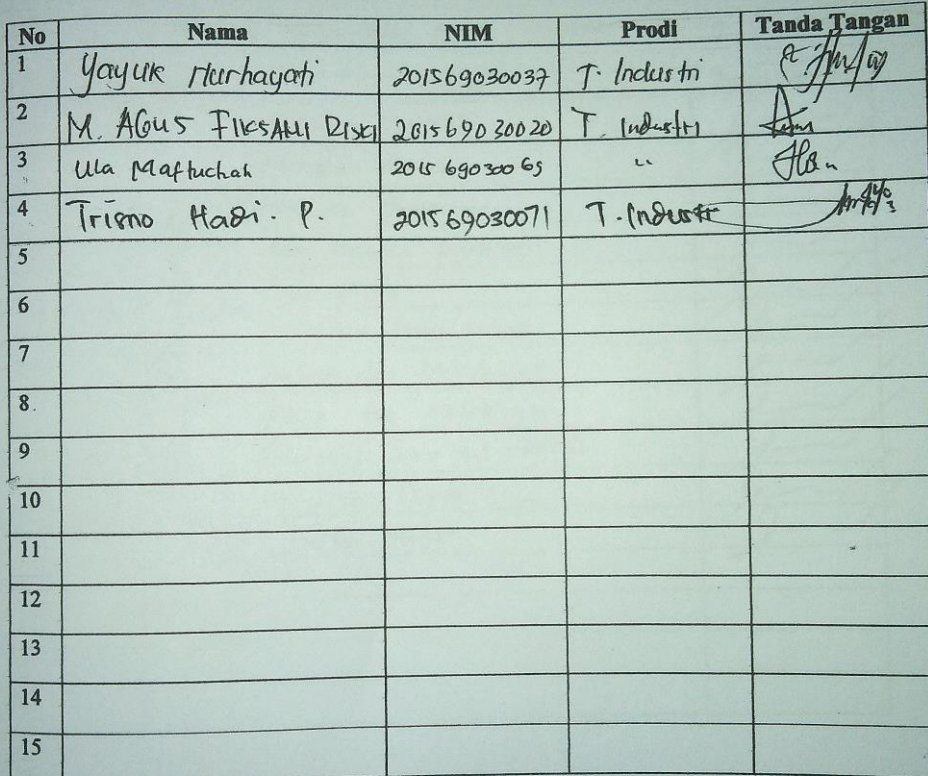 No Nama NIM Prodi Tanda Tangan
1 Yayuk Nurhayati 201569030037 T. Industri
2 M. AGUS FIKSANI RISKI 201569030020 T. Industri
3 Ula Maftuchah 201569030065 "
4 Trisno Hadi. P. 201569030071 T. Industri
5
6
7
8.
9
10
11
12
13
14
15